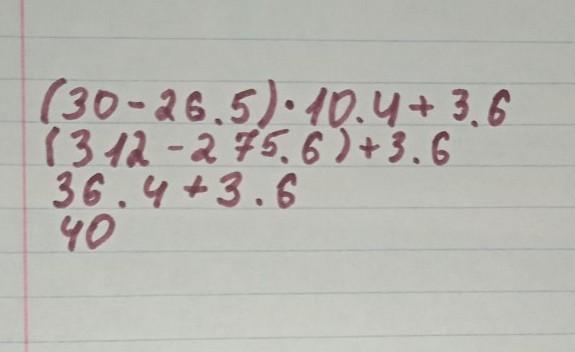 (30-26.5)·10.4+3.6
(312-275.6)+3.6
36.4+3.6
40